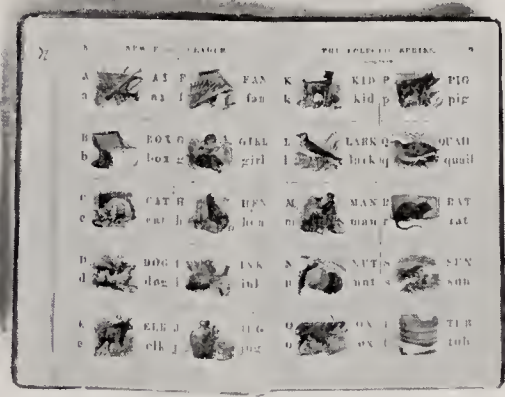 8
THE ECLECTIC SERIES. 9
A AX F FAN
a ax f fan
B BOX G GIRL
b box g girl
C CAT H HEN
c cat h hen
D DOG I INK
d dog i ink
E ELK J JUG
e elk j jug
K KID P PIG
k kid p pig
L LARK Q QUAIL
l lark q quail
M MAN R RAT
m man r rat
N NUT S SUN
n nut s sun
O OX T TUB
o ox t tub